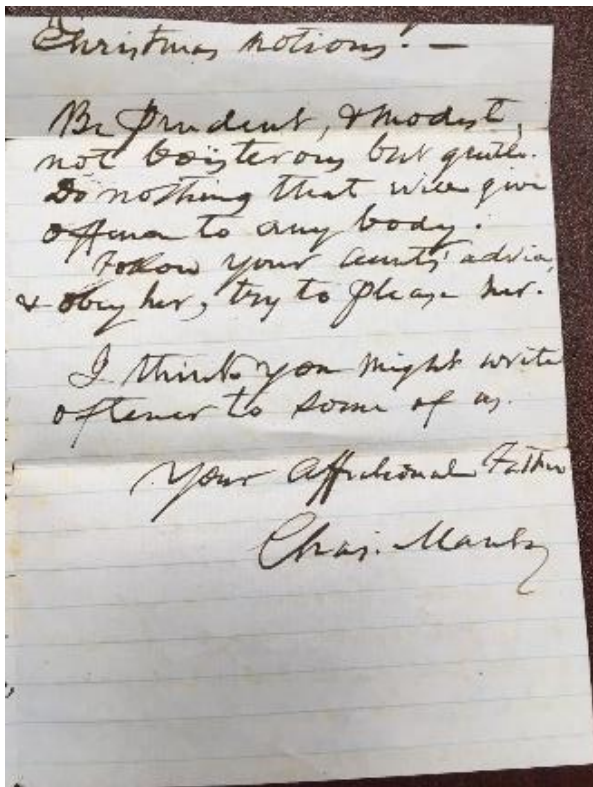 Christmas notions! —
Be prudent, & modest,
not boisterous but gentle.
Do nothing that will give
offence to any body.
Follow your aunts' advice,
& obey her, try to please her.
I think you might write
oftener to some of us.
Your affectionate Father
Chas.